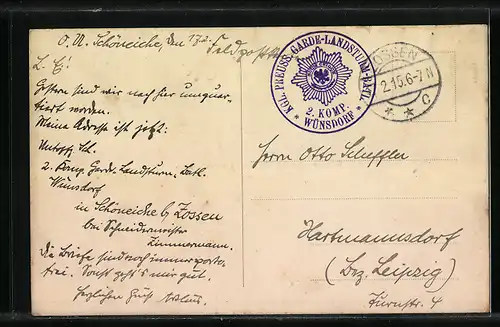 O. U. Schöneiche, den
Feldpostk
L. E!
Gestern sind wir nach hier umquar-
tiert worden.
Meine Adresse ist jetzt:
Untoffz. Sch.
2. Komp. Garde. Landsturm. Batl.
Wünsdorf
in Schöneiche b/ Zossen
bei Schneidermeister
Zimmermann.
Die Briefe sind noch immer porto-
frei. Sonst geht's mir gut.
Herzlichen Gruß
KGL. PREUSS. GARDE-LANDSTURM-BATL.
2. KOMP.
* WÜNSDORF *
ZOSSEN
2.15.6-7N
* * C
Herrn Otto Scheffler
Hartmannsdorf
(Bez. Leipzig)
Turnstr. 4